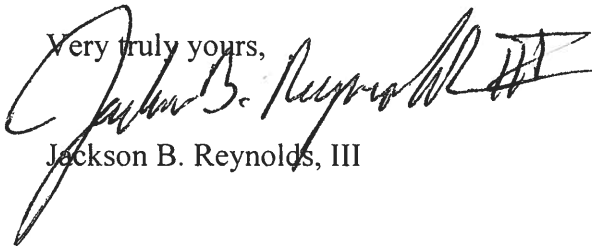 Very truly yours,
Jackson B. Reynolds III
Jackson B. Reynolds, III